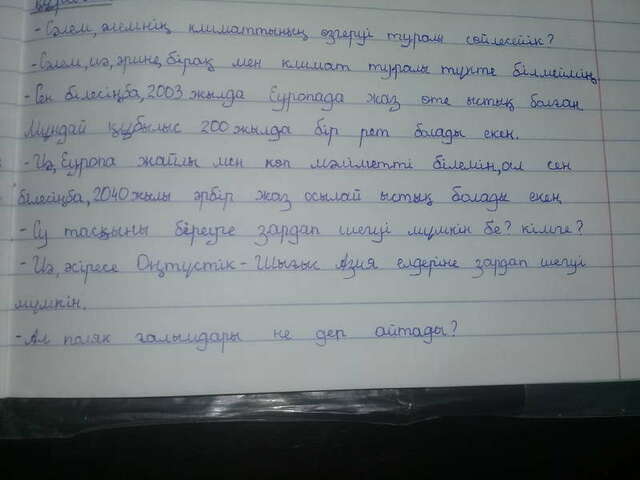 - Сәлем, әлемнің климаттының өзгеруі туралы сөйлесейік?
- Сәлем, иә, әрине, бірақ мен климат туралы түкте білмеймін.
- Сен білесіңба, 2003 жылда Еуропада жаз өте ыстық болған
Мұндай құбылыс 200 жылда бір рет болады екен.
- Иә, Еуропа жайлы мен көп мәліметті білемін, ал сен
білесіңба, 2040 жылы әрбір жаз осылай ыстық болады екен
- Су тасқыны біреуге зардап шегуі мүмкін бе? кімге?
- Иә, әсіресе Оңтүстік-Шығыс Азия елдеріне зардап шегуі
мүмкін.
- Ал поляк ғалымдары не деп айтады?